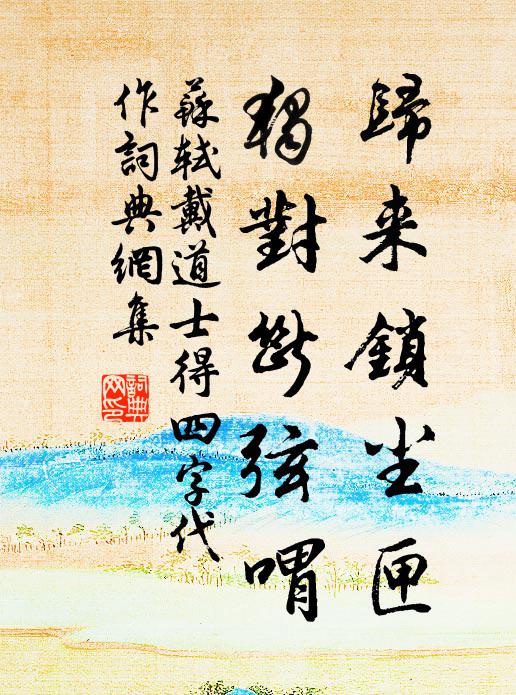 歸来鎖尘匣
獨對斷弦喟
蘇軾戴道士得四字代
作詞典網集
詞典网印